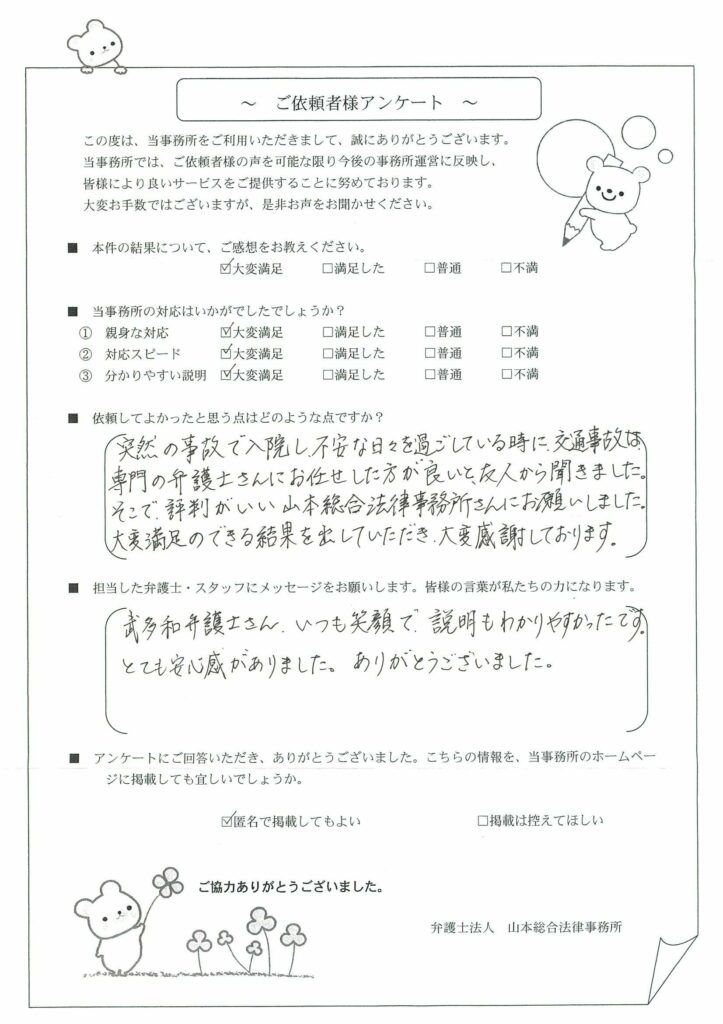 ～ ご依頼者様アンケート ～
この度は、当事務所をご利用いただきまして、誠にありがとうございます。
当事務所では、ご依頼者様の声を可能な限り今後の事務所運営に反映し、
皆様により良いサービスをご提供することに努めております。
大変お手数ではございますが、是非お声をお聞かせください。
■ 本件の結果について、ご感想をお教えください。
☑大変満足 □満足した □普通 □不満
■ 当事務所の対応はいかがでしたでしょうか？
① 親身な対応 ☑大変満足 □満足した □普通 □不満
② 対応スピード ☑大変満足 □満足した □普通 □不満
③ 分かりやすい説明 ☑大変満足 □満足した □普通 □不満
■ 依頼してよかったと思う点はどのような点ですか？
突然の事故で入院し、不安な日々を過ごしている時に、交通事故は、
専門の弁護士さんにお任せした方が良いと、友人から聞きました。
そこで、評判がいい山本総合法律事務所さんにお願いしました。
大変満足のできる結果を出していただき、大変感謝しております。
■ 担当した弁護士・スタッフにメッセージをお願いします。皆様の言葉が私たちの力になります。
武多和弁護士さん、いつも笑顔で、説明もわかりやすかったです。
とても安心感がありました。ありがとうございました。
■ アンケートにご回答いただき、ありがとうございました。こちらの情報を、当事務所のホームペー
ジに掲載しても宜しいでしょうか。
☑匿名で掲載してもよい □掲載は控えてほしい
ご協力ありがとうございました。
弁護士法人 山本総合法律事務所